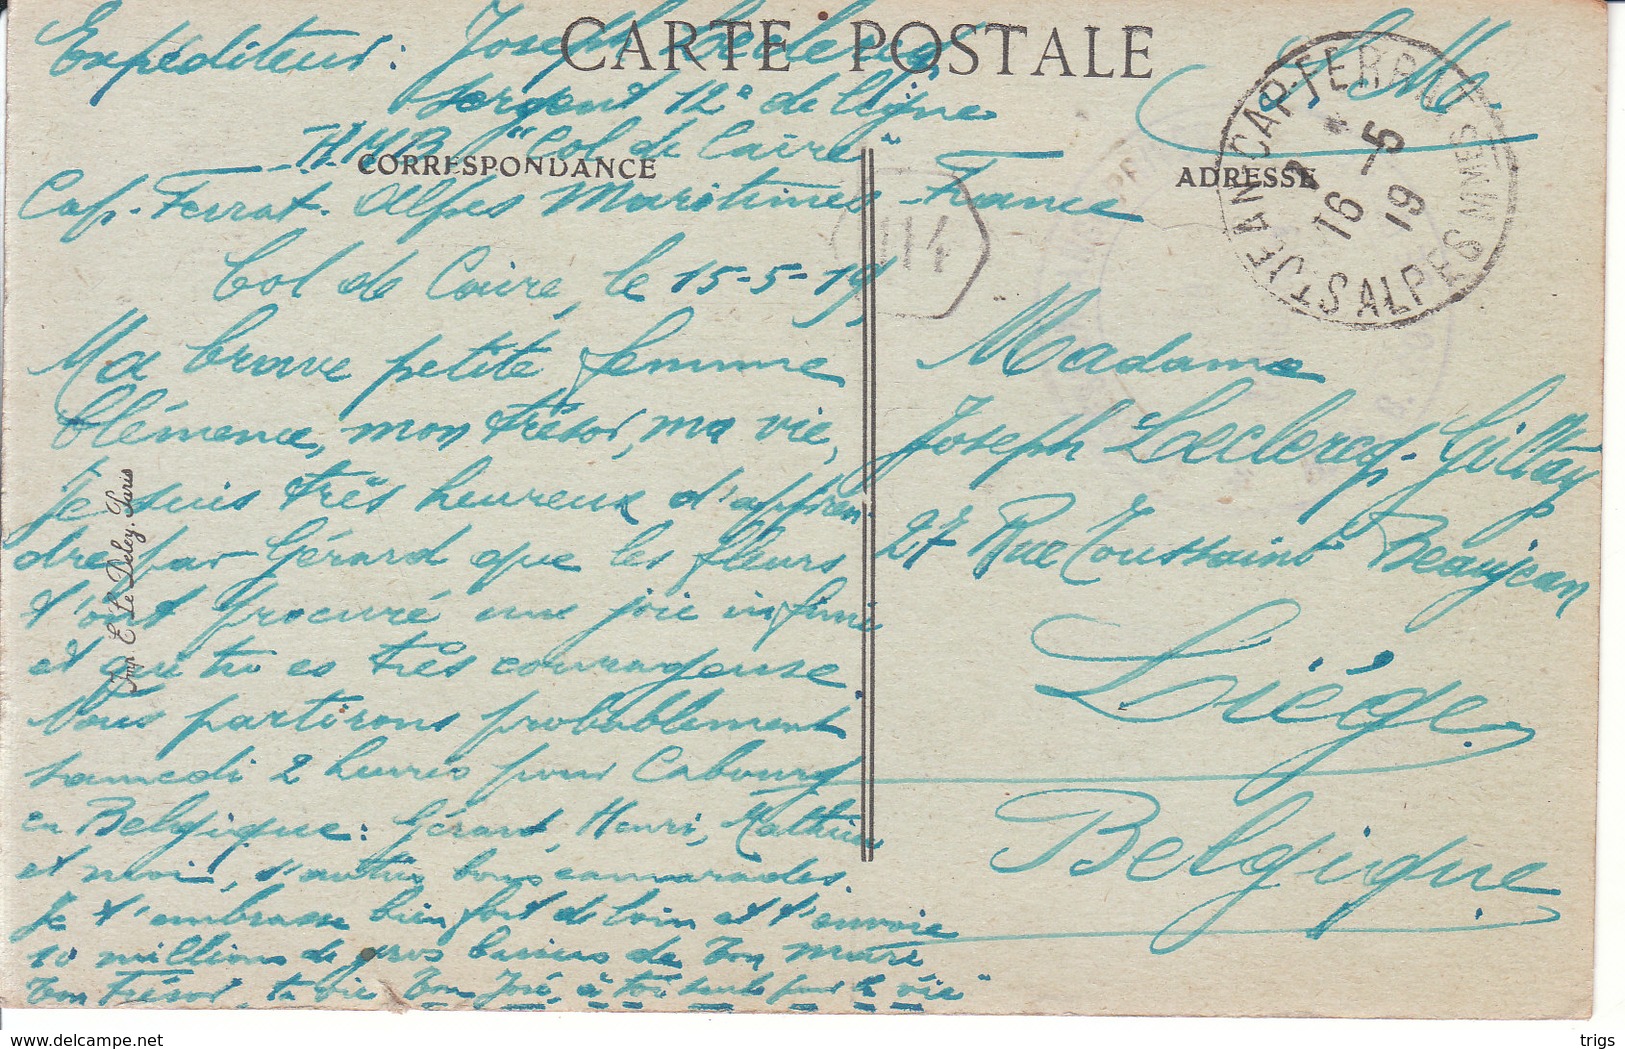 CARTE POSTALE
Expéditeur: Joseph Leclercq
sergent 12e de ligne
H.M.B. "Col de Caire"
CORRESPONDANCE
Cap-Ferrat. Alpes Maritimes-France
Col de Caire, le 15-5-19
Ma brave petite femme
Clémence, mon trésor, ma vie,
Je suis très heureux d'appren-
dre par Gérard que les fleurs
t'ont procuré une joie infinie
et que tu es très courageuse.
Nous partirons probablement
samedi 2 heures pour Cabourg
en Belgique: Gérard, Henri, Mathieu
et moi, d'autres bons camarades.
Je t'embrasse bien fort de loin et t'envoie
10 millions de gros baisers de ton mari
ton Trésor, ta vie ton José, à toi seule pour la vie"
Imp. E. Le Deley. Paris
S.M.
ADRESSE
ST JEAN CAP FERRAT
ALPES MMES
16 -5
19
114
Madame
Joseph Leclercq-Gillay
27 Rue Toussaint Beaujean
Liége
Belgique
delcampe.net
trigs